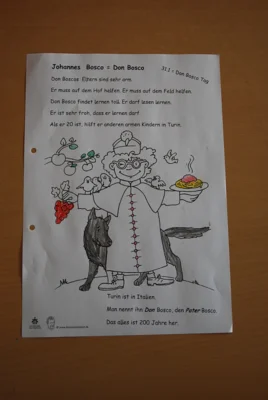 Johannes Bosco = Don Bosco
31.1 = Don Bosco Tag
Don Boscos Eltern sind sehr arm.
Er muss auf dem Hof helfen. Er muss auf dem Feld helfen.
Don Bosco findet lernen toll. Er darf lesen lernen.
Er ist sehr froh, dass er lernen darf.
Als er 20 ist, hilft er anderen armen Kindern in Turin.
Turin ist in Italien.
Man nennt ihn Don Bosco, den Pater Bosco.
Das alles ist 200 Jahre her.